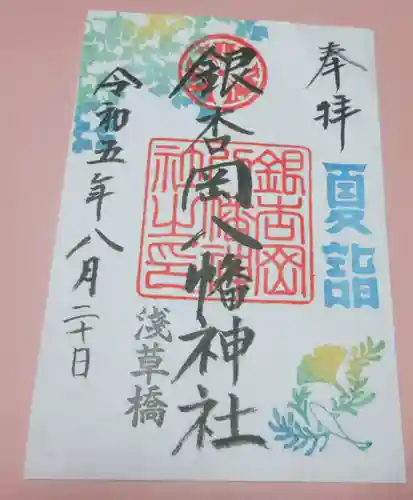 奉拝
夏詣
銀杏岡八幡神社
銀杏岡八幡神社之印
淺草橋
令和五年八月二十日